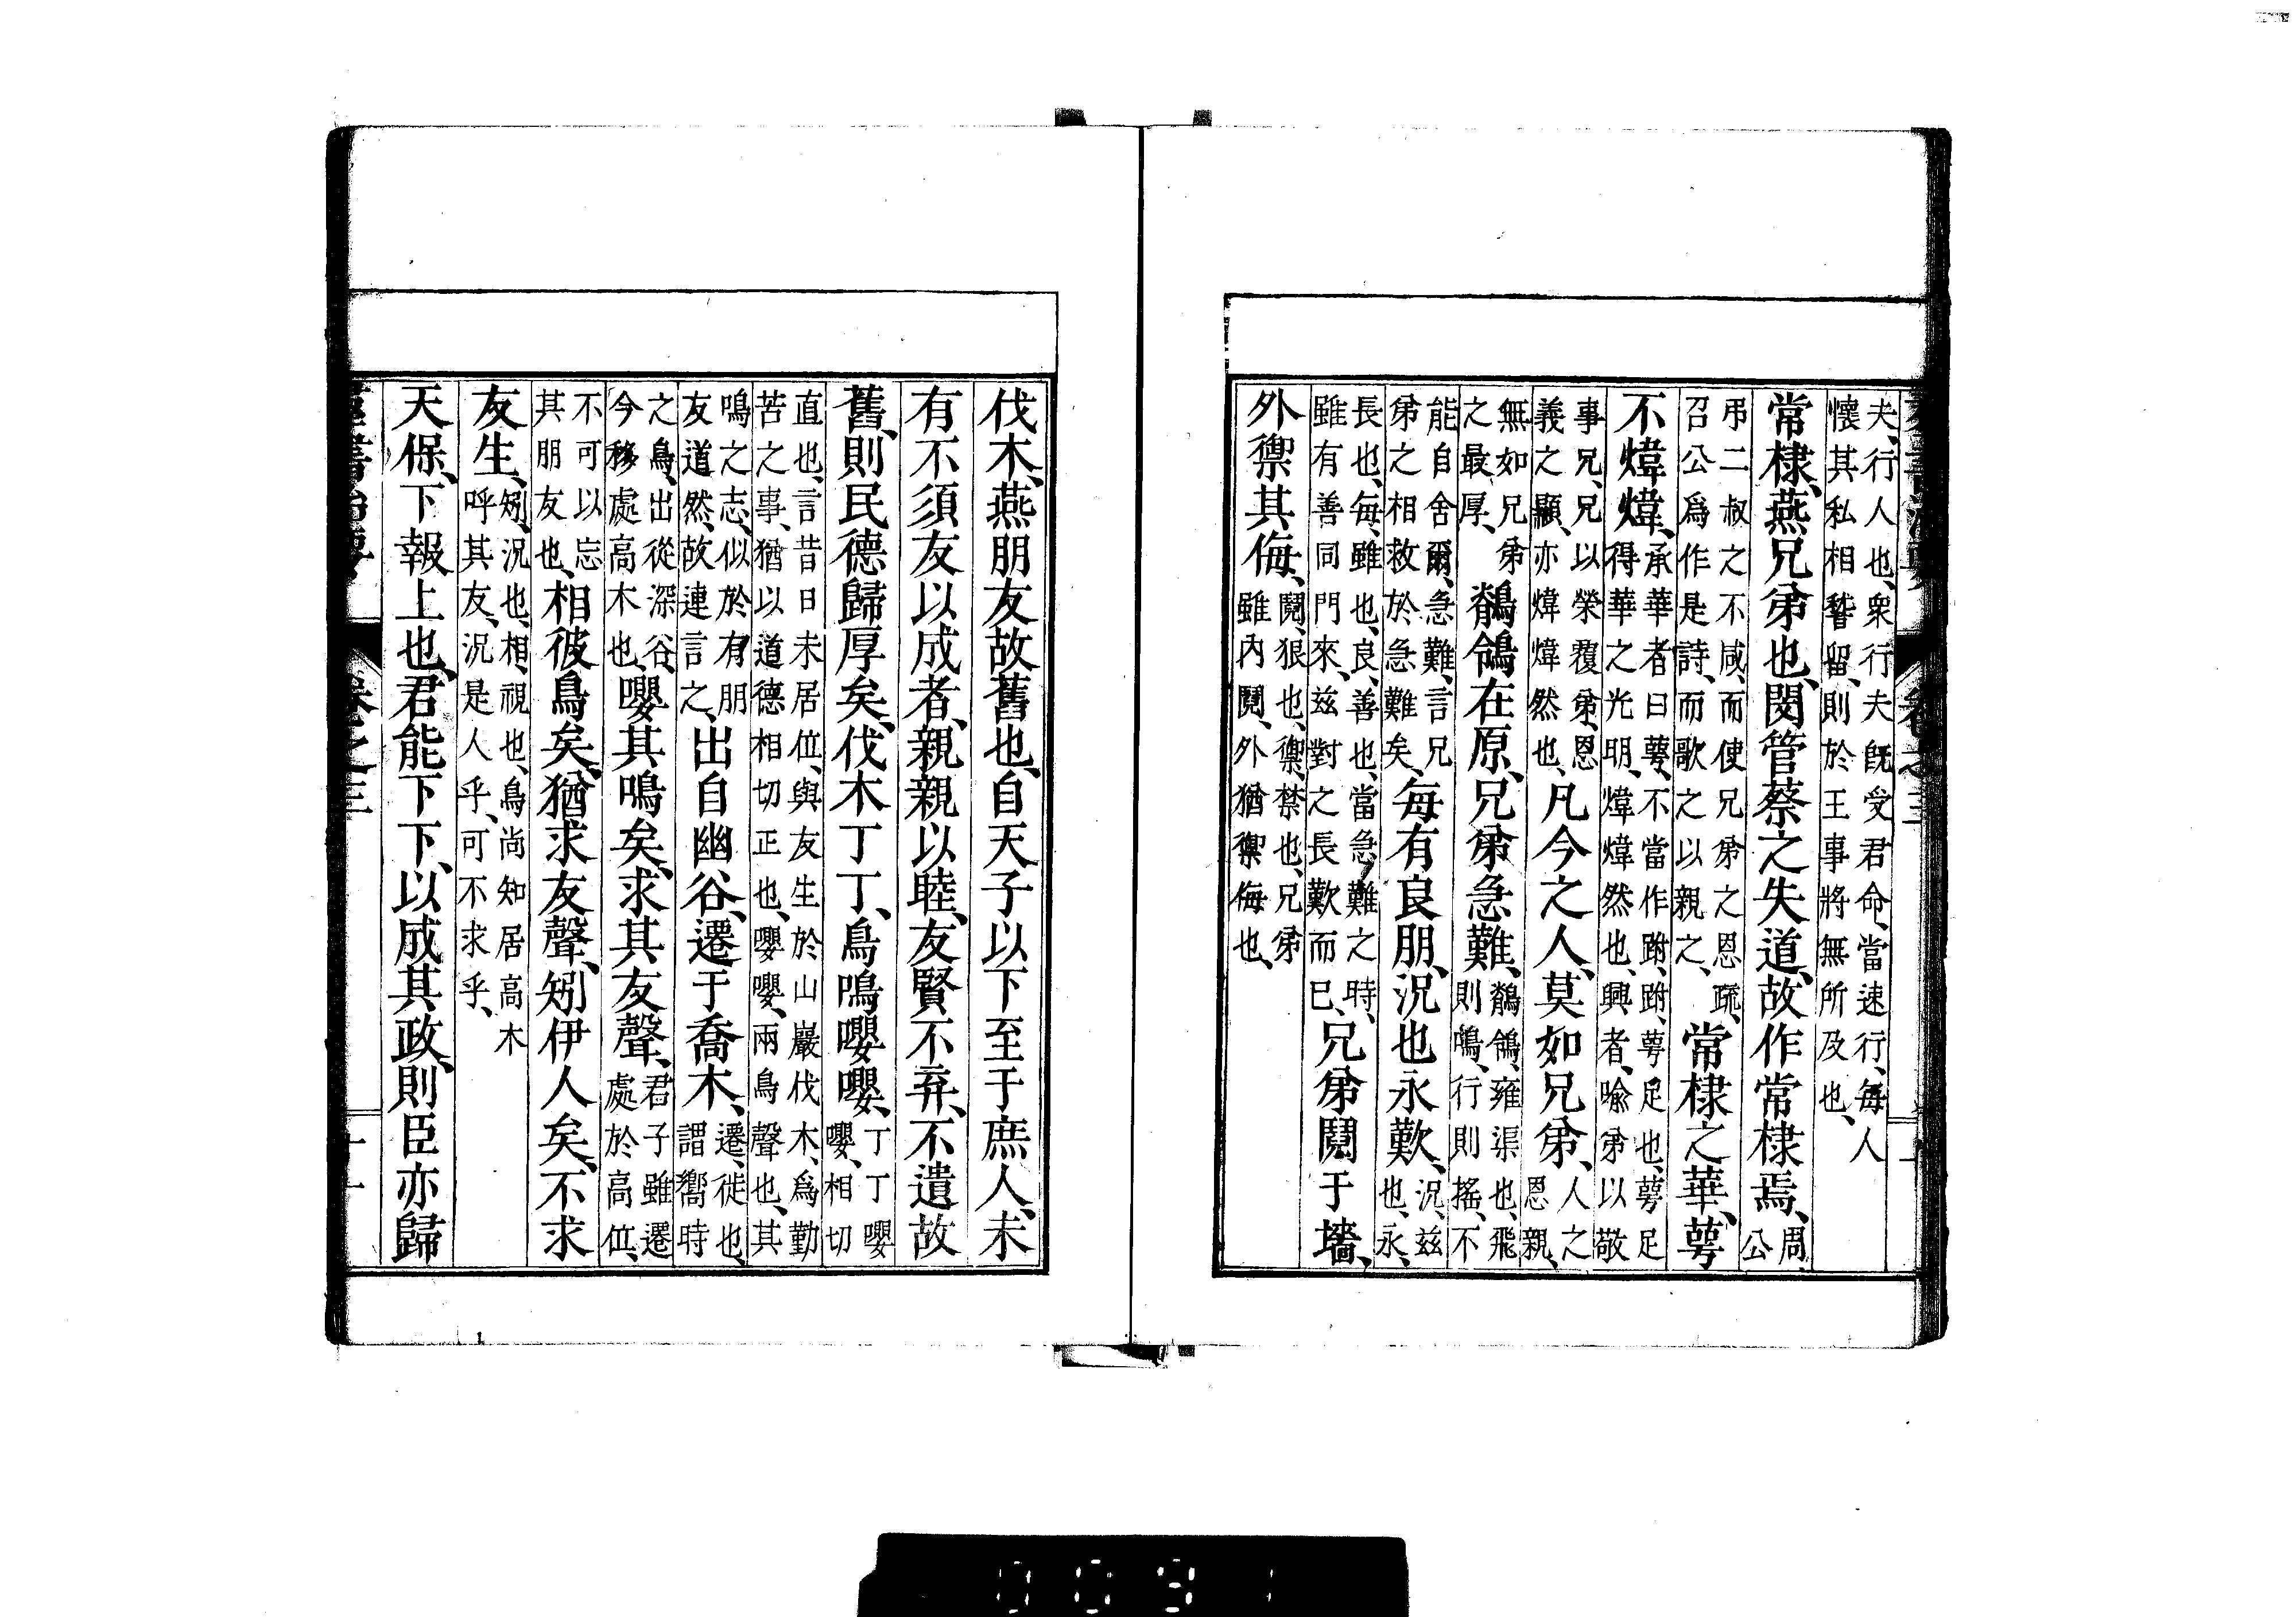 夫、行人也、衆行夫旣受君命、當速行、每人
懷其私相稽留、則於王事將無所及也、
常棣、燕兄弟也、閔管蔡之失道、故作常棣焉、周公
弔二叔之不咸、而使兄弟之恩疏、
召公爲作是詩、而歌之以親之、
常棣之華、萼
不煒煒、
承華者曰萼、不當作跗、跗、萼足也、萼足
得華之光明、煒煒然也、興者、喩弟以敬
事兄、兄以榮覆弟、恩
義之顯、亦煒煒然也、
凡今之人、莫如兄弟、
人之恩親、
無如兄弟
之最厚、
鶺鴒在原、兄弟急難、
鶺鴒、雍渠也、飛
則鳴、行則搖、不
能自舍爾、急難、言兄
弟之相救於急難矣、
每有良朋、況也永歎、
況、兹
也、永、
長也、每、雖也、良、善也、當急難之時、
雖有善同門來、兹對之長歎而已、
兄弟鬩于墻、
外禦其侮、
鬩、狠也、禦、禁也、兄弟
雖內鬩、外猶禦侮也、
伐木、燕朋友故舊也、自天子以下至于庶人、未
有不須友以成者、親親以睦、友賢不弃、不遺故
舊、則民德歸厚矣、伐木丁丁、鳥鳴嚶嚶、
丁丁嚶
嚶、相切
直也、言昔日未居位、與友生於山巖伐木、爲勤
苦之事、猶以道德相切正也、嚶嚶、兩鳥聲也、其
鳴之志、似於有朋
友道然、故連言之、
出自幽谷、遷于喬木、
遷、徙也、
謂嚮時
之鳥、出從深谷、
今移處高木也、
嚶其鳴矣、求其友聲、
君子雖遷
處於高位、
不可以忘
其朋友也、
相彼鳥矣、猶求友聲、矧伊人矣、不求
友生、
矧、況也、相、視也、鳥尚知居高木
呼其友、況是人乎、可不求乎、
天保、下報上也、君能下下、以成其政、則臣亦歸
群書治要
卷之三
十一
0091